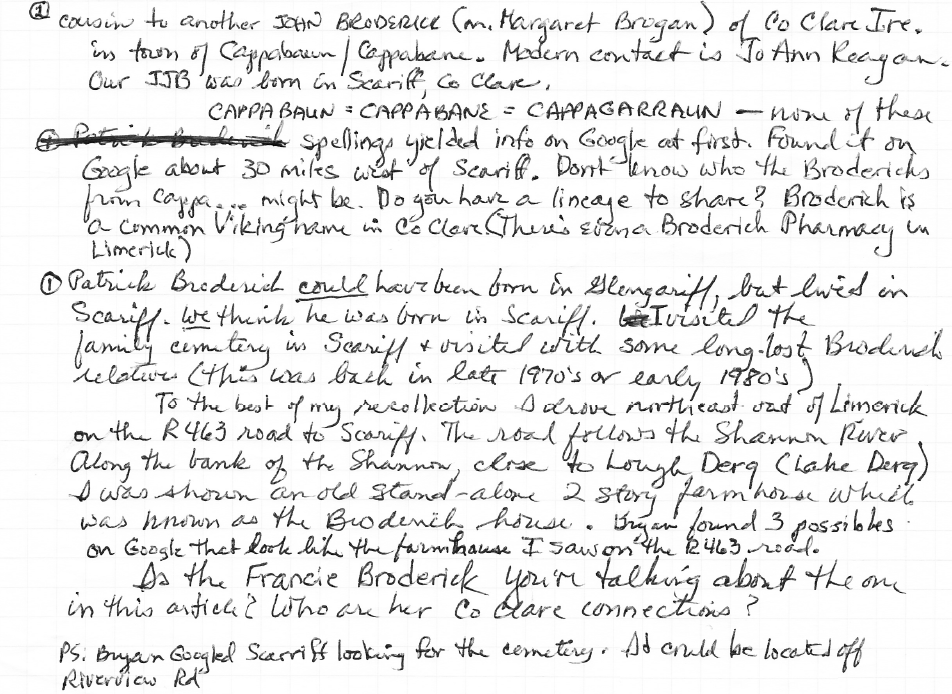 ② cousin to another JOHN BRODERICK (m. Margaret Brogan) of Co Clare Ire.
in town of Cappabaun/Cappabane. Modern contact is Jo Ann Reagan.
Our JJB was born in Scariff, Co Clare.
CAPPABAUN = CAPPABANE = CAPPAGARRAUN — none of these
① Patrick Broderick spellings yielded info on Google at first. Found it on
Google about 30 miles west of Scariff. Don't know who the Brodericks
from Cappa... might be. Do you have a lineage to share? Broderick is
a common Viking name in Co Clare (There's even a Broderick Pharmacy in
Limerick)
① Patrick Broderick could have been born in Glengariff, but lived in
Scariff. We think he was born in Scariff. I visited the
family cemetery in Scariff + visited with some long-lost Broderick
relatives (this was back in late 1970's or early 1980's)
To the best of my recollection I drove northeast out of Limerick
on the R463 road to Scariff. The road follows the Shannon River.
Along the bank of the Shannon, close to Lough Derg (Lake Derg)
I was shown an old stand-alone 2 story farmhouse which
was known as the Broderick house. Bryan found 3 possibles
on Google that look like the farmhouse I saw on the R463 road.
Is the Francie Broderick you're talking about the one
in this article? Who are her Co Clare connections?
PS: Bryan Googled Scarriff looking for the cemetery. It could be located off
Riverview Rd